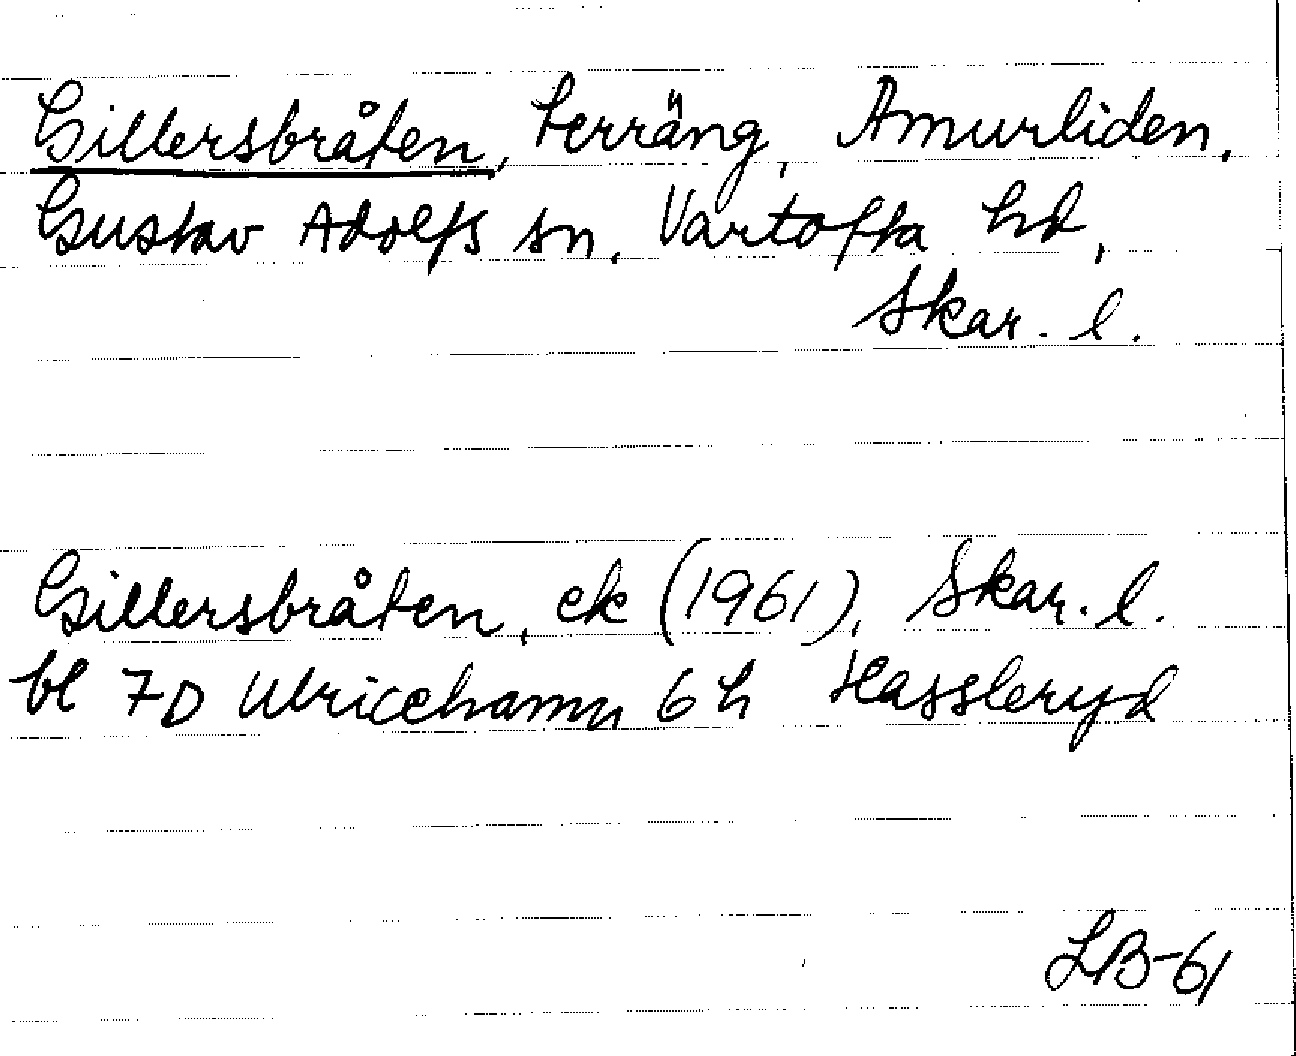 Gillersbråten, terräng, Amurliden,
Gustav Adolfs sn, Vartofta hd,
Skar. l.
Gillersbråten, ek (1961), Skar. l.
bl 7D Ulricehamn 6h Hassleryd
LB-61